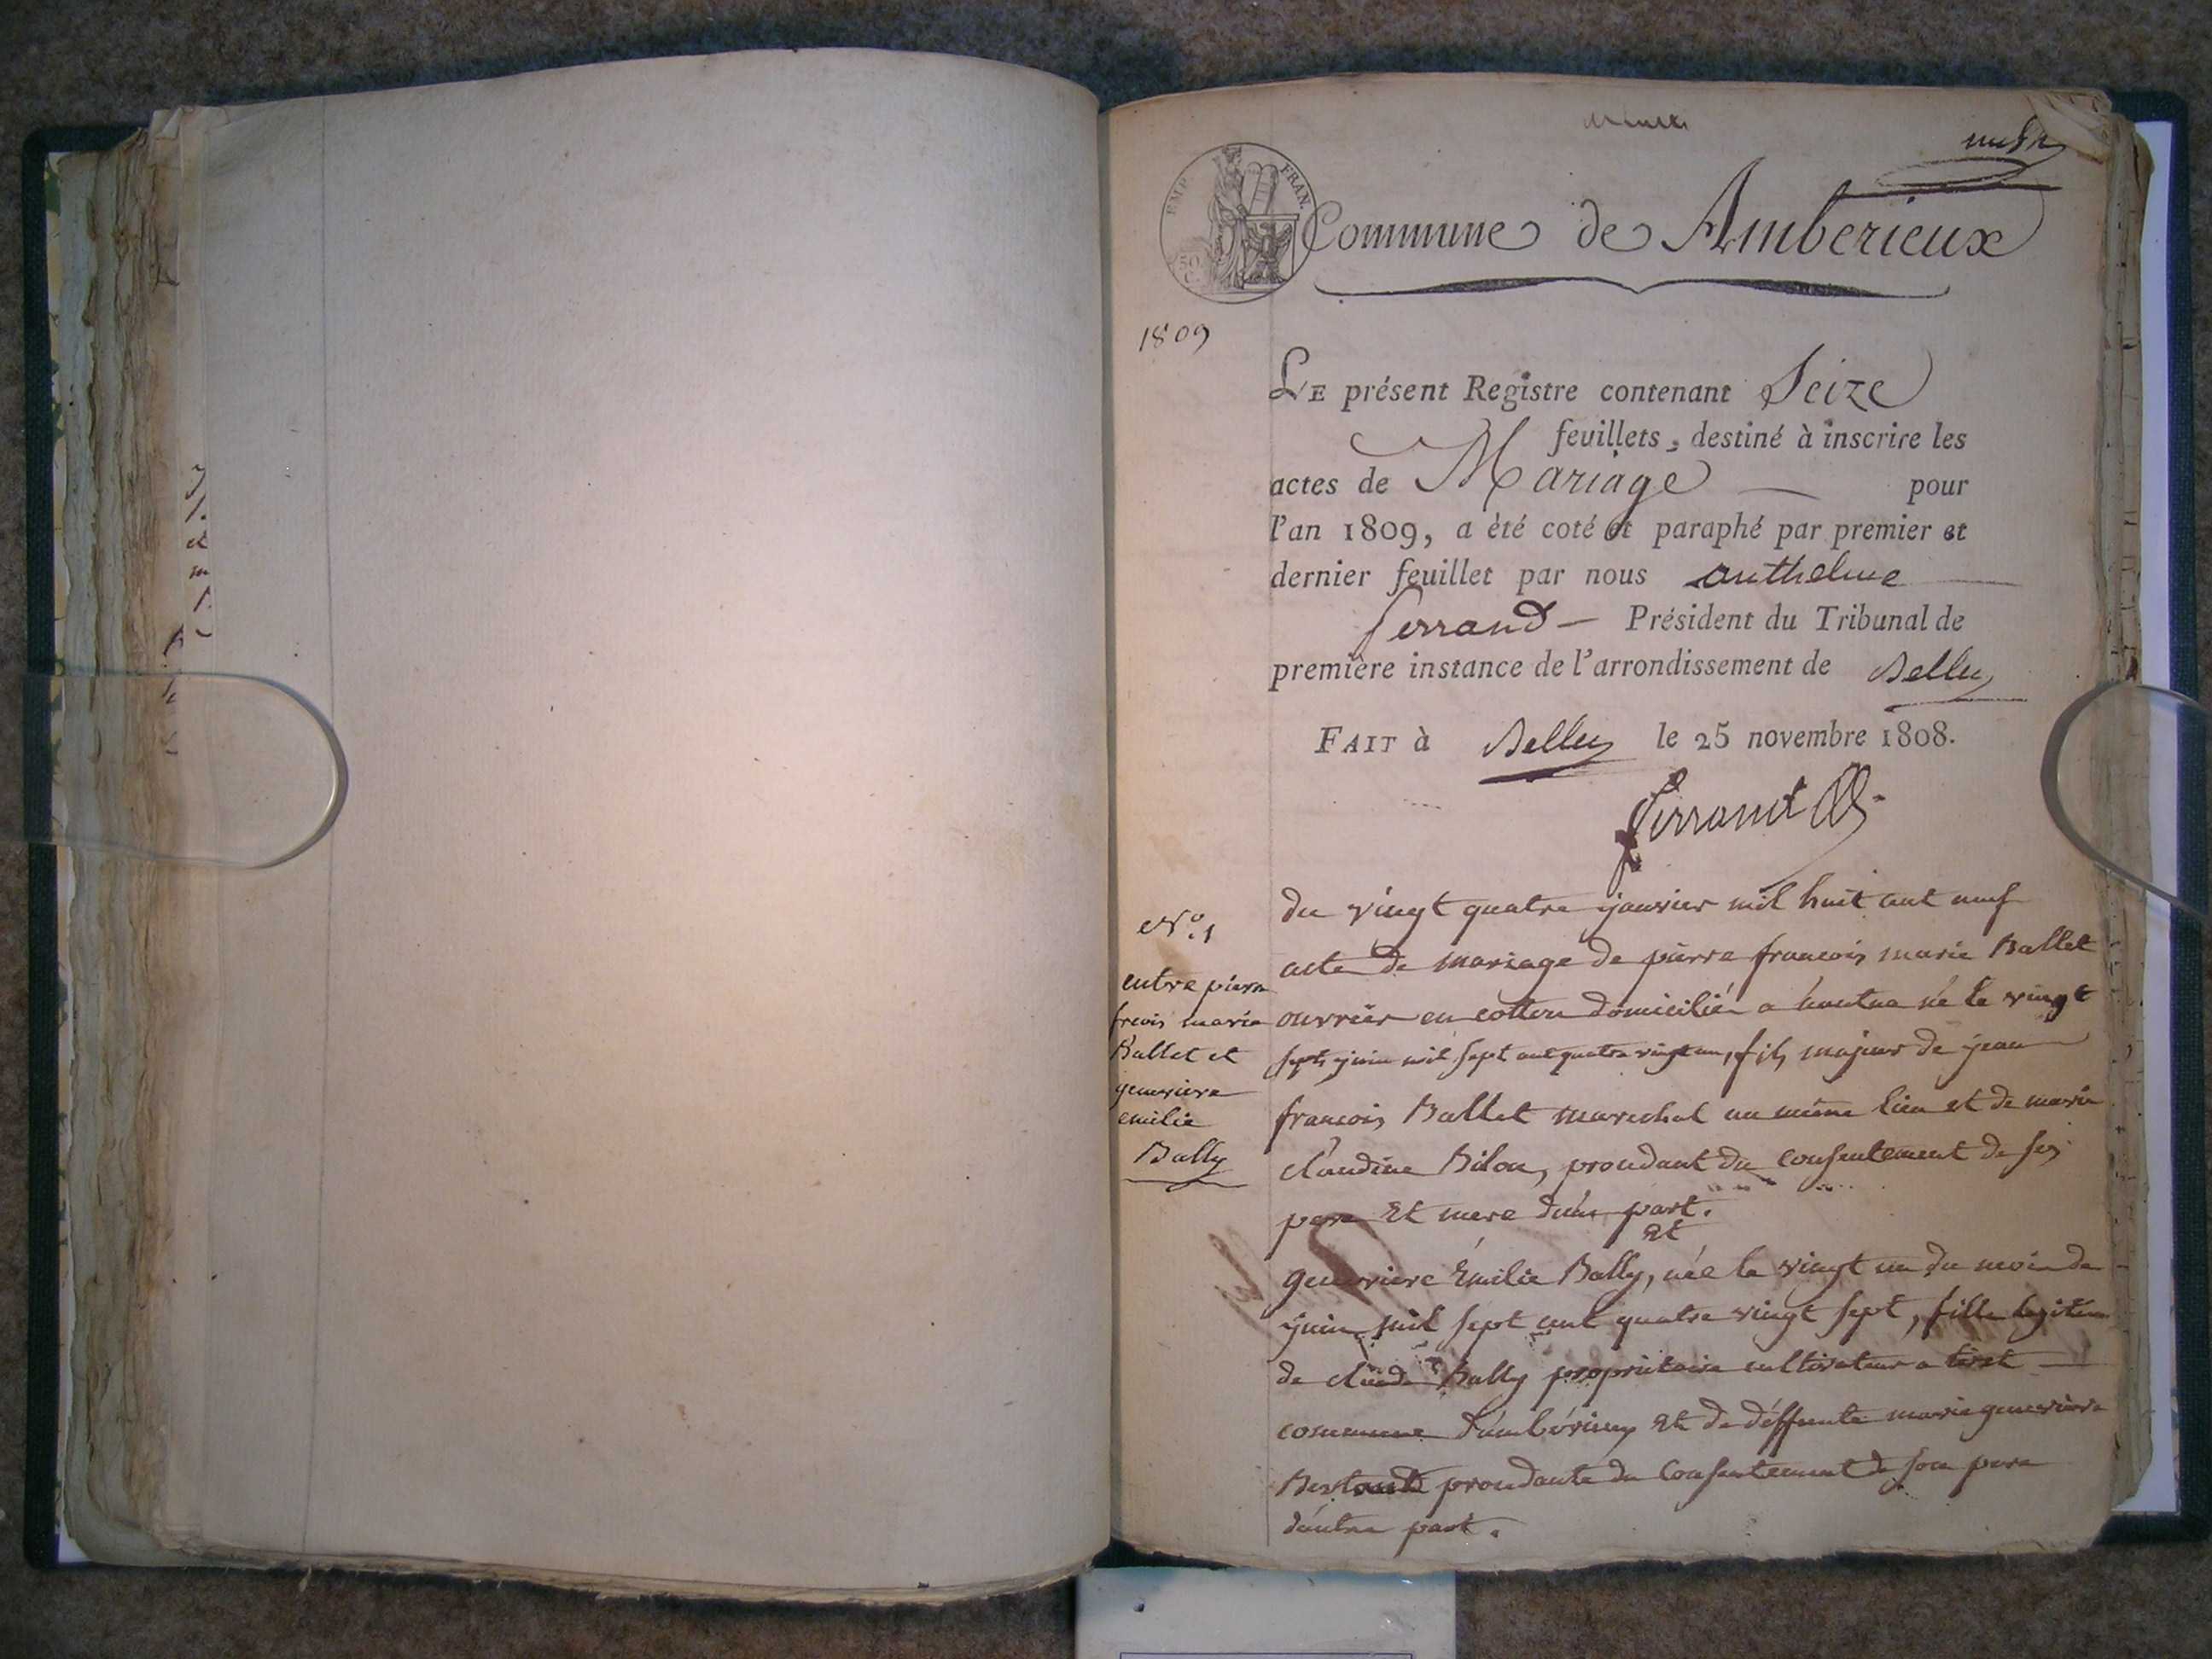 EMP. FRAN.
50
C.
Commune de Amberieux
1809
LE présent Registre contenant Seize
feuillets, destiné à inscrire les
actes de Mariage pour
l'an 1809, a été coté et paraphé par premier et
dernier feuillet par nous anthelme
ferrand - Président du Tribunal de
première instance de l'arrondissement de Belley
FAIT à Belley le 25 novembre 1808.
ferrand
N°. 1
entre pierre
frcois marie
Ballet et
genevieve
emilie
Bally
du vingt quatre janvier mil huit cent neuf
acte de mariage de pierre francois marie Ballet
ouvrier en cotton domicilié a né le vingt
sept juin mil sept cent quatre vingt un, fils majeur de jean
francois Ballet marechal au même lieu et de marie
claudine Bilon, procedant du consentement de ses
pere Et mere d'une part.
Et
genevieve Emilie Bally, née le vingt un du mois de
juin mil sept cent quatre vingt sept, fille legitime
de claude Bally proprietaire cultivateur a tiret
commune d'ambérieux Et de déffunte marie genevieve
procedante du consentement de son pere
d'autre part.